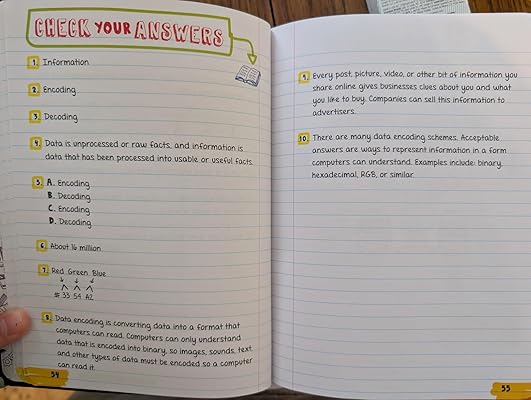 CHECK YOUR ANSWERS
1. Information
2. Encoding
3. Decoding
4. Data is unprocessed or raw facts, and information is
data that has been processed into usable or useful facts.
5. A. Encoding
B. Decoding
C. Encoding
D. Decoding
6. About 16 million
7. Red Green Blue
# 33 54 A2
8. Data encoding is converting data into a format that
computers can read. Computers can only understand
data that is encoded into binary, so images, sounds, text,
and other types of data must be encoded so a computer
can read it.
54
9. Every post, picture, video, or other bit of information you
share online gives businesses clues about you and what
you like to buy. Companies can sell this information to
advertisers.
10. There are many data encoding schemes. Acceptable
answers are ways to represent information in a form
computers can understand. Examples include: binary,
hexadecimal, RGB, or similar.
55